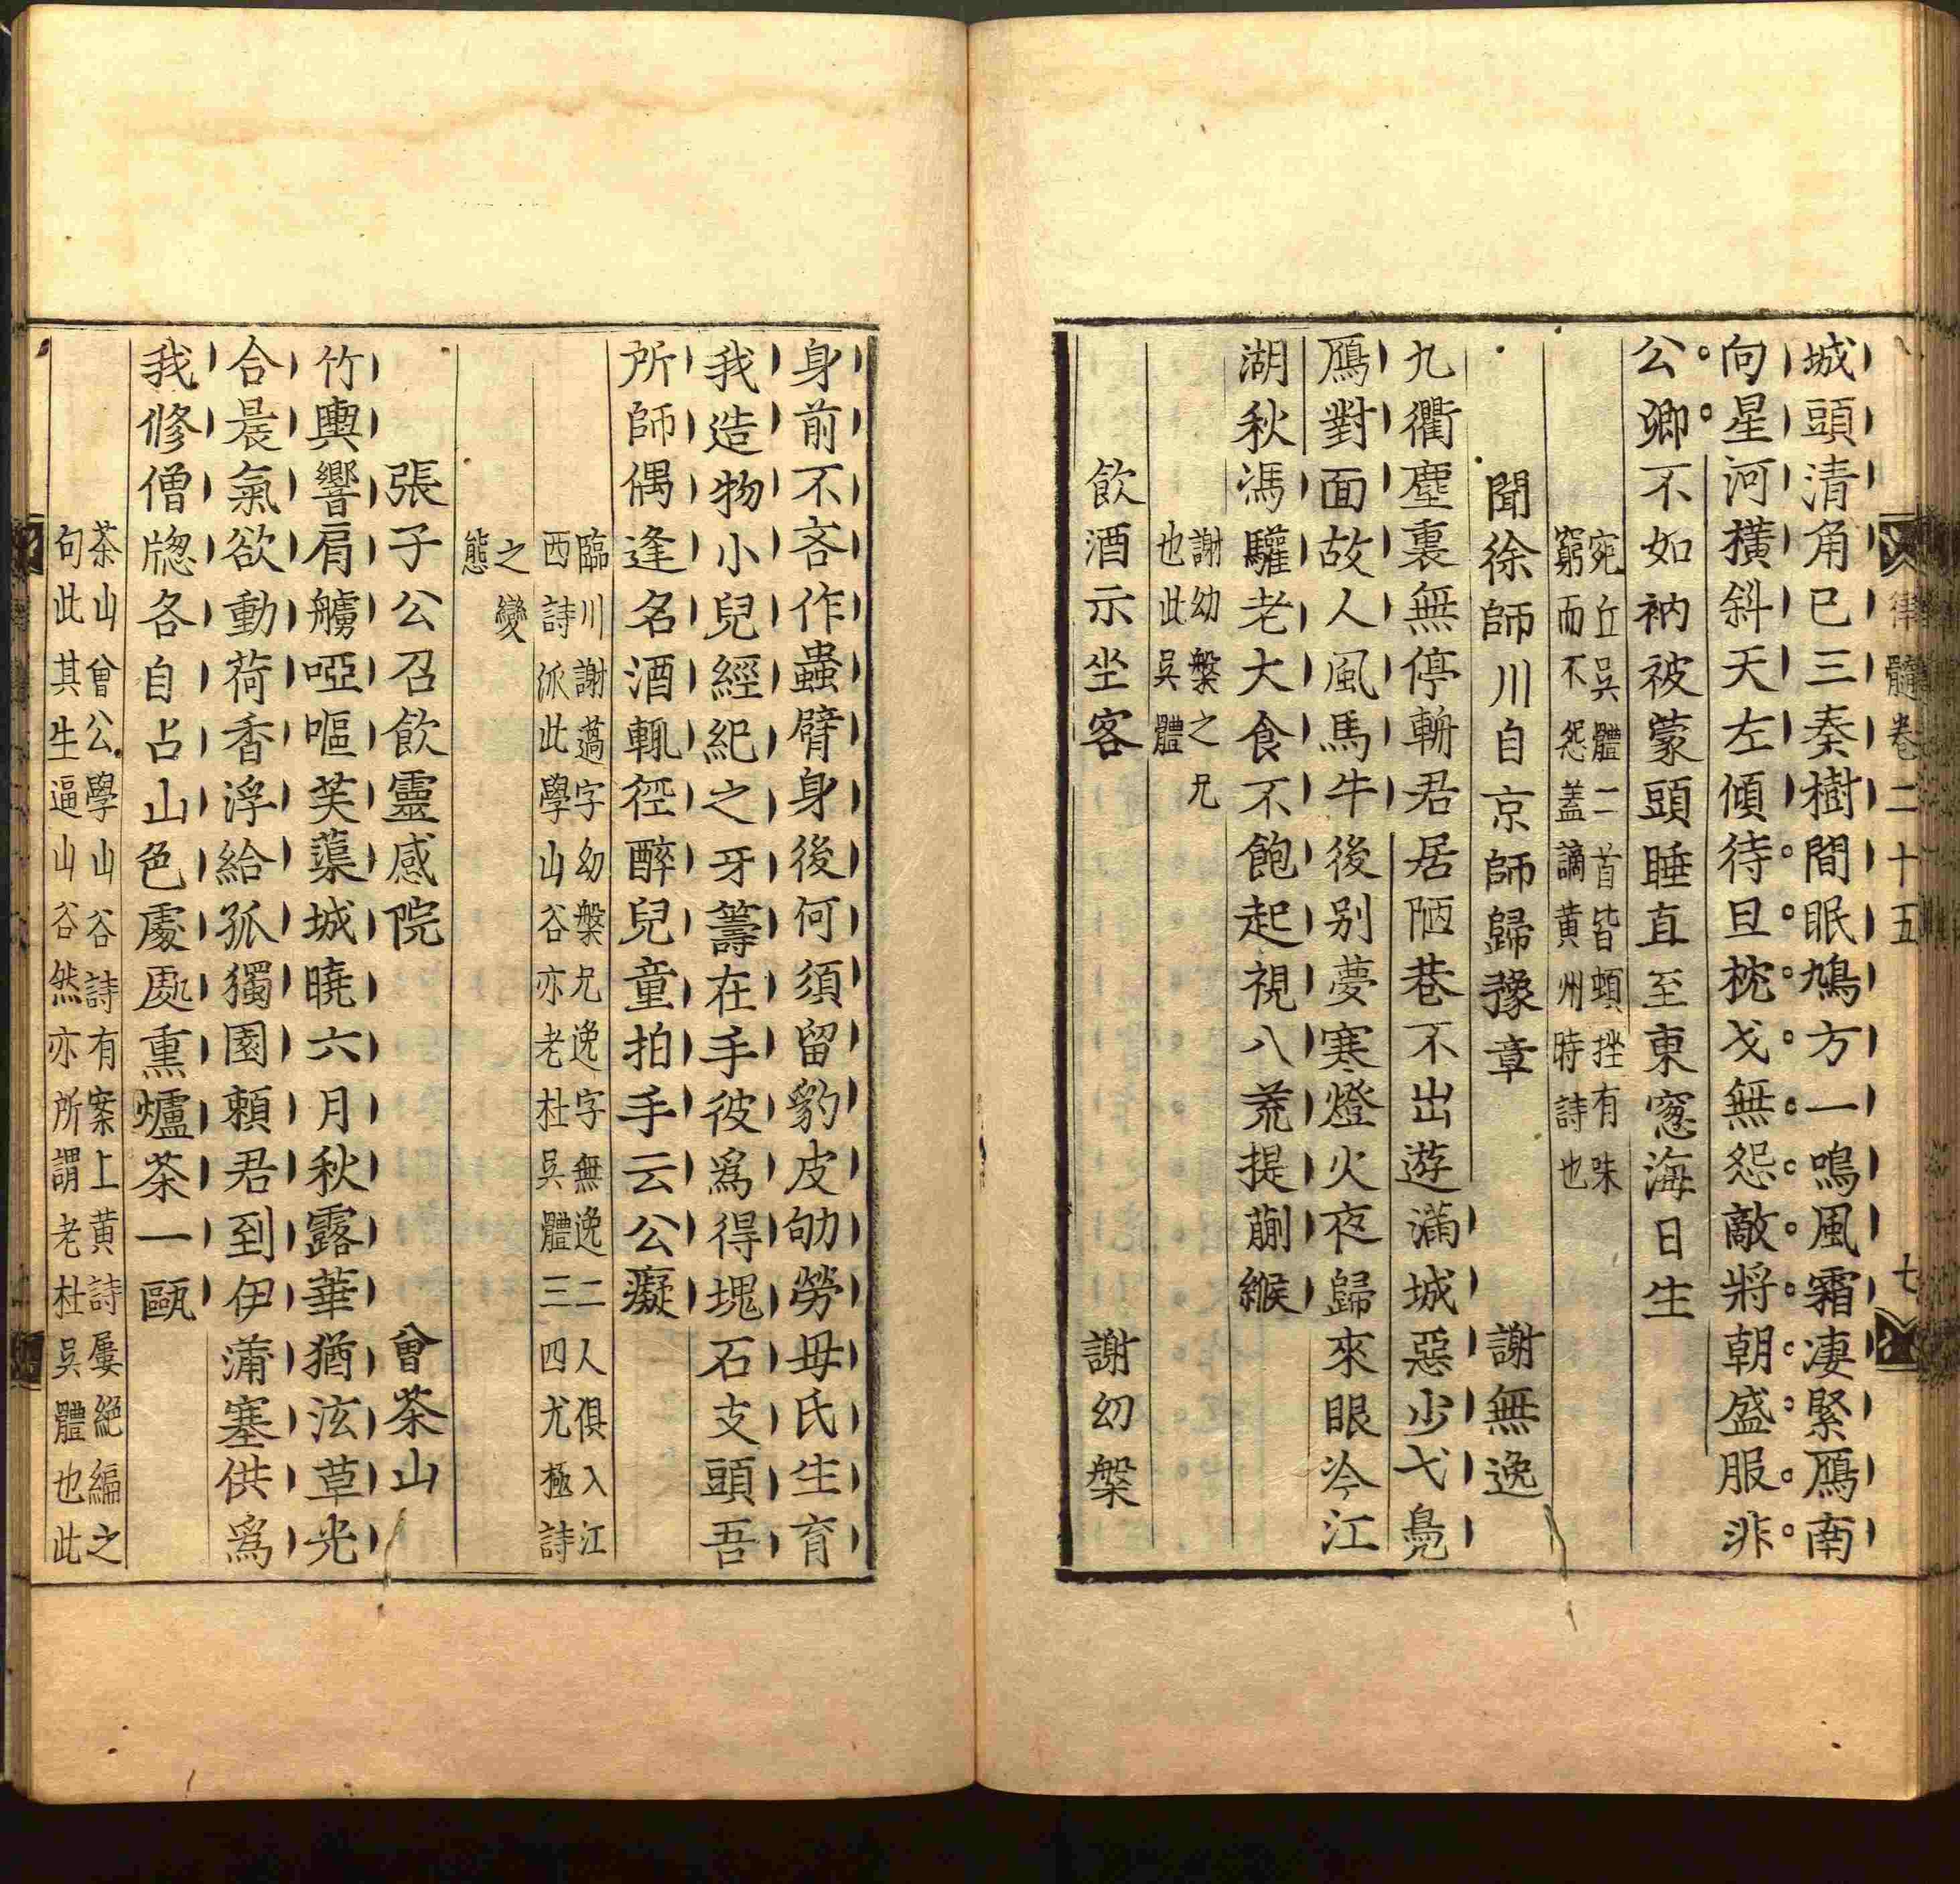 律髓卷二十五 七
城頭清角已三奏樹間眠鳩方一鳴風霜淒緊鴈南
向星河橫斜天左傾待旦枕戈無怨敵將朝盛服非
公卿不如衲被蒙頭睡直至東窻海日生
宛丘吳體二首皆頓挫有味
窮而不怨蓋謫黄州時詩也
聞徐師川自京師歸豫章 謝無逸
九衢塵裏無停輈君居陋巷不出遊滿城惡少弋鳧
鴈對面故人風馬牛後别夢寒燈火夜歸來眼冷江
湖秋馮驩老大食不飽起視八荒提蒯緱
謝幼槃之兄
也此吳體
飲酒示坐客 謝幼槃
身前不吝作蟲臂身後何須留豹皮劬勞毋氏生育
我造物小兒經紀之牙籌在手彼爲得塊石支頭吾
所師偶逢名酒輒徑醉兒童拍手云公癡
臨川謝薖字幼槃兄逸字無逸二人俱入江
西詩派此學山谷亦老杜吳體三四尤極詩
之變
態
張子公召飲靈感院 曾茶山
竹輿響肩艣啞嘔芙蕖城曉六月秋露華猶泫草光
合晨氣欲動荷香浮給孤獨園頼君到伊蒲塞供爲
我修僧牎各自占山色處處熏爐茶一甌
茶山曾公學山谷詩有案上黄詩屢絕編之
句此其生逼山谷然亦所謂老杜吳體也此